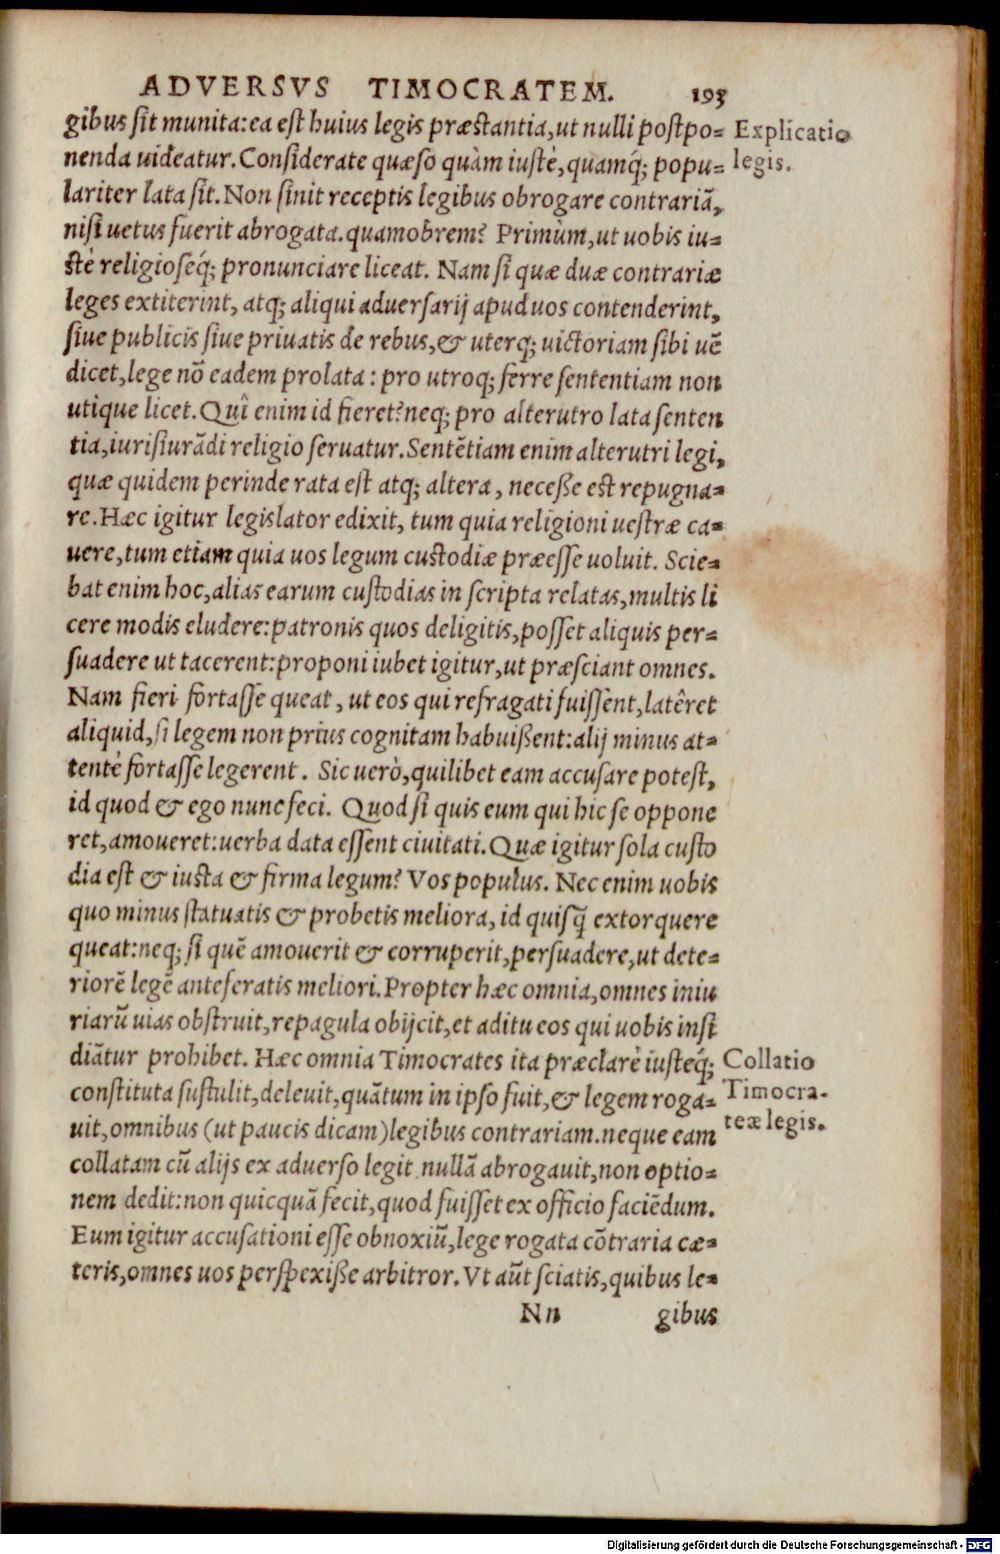 ADVERSVS TIMOCRATEM. 193
gibus sit munita: ea est huius legis præstantia, ut nulli postpo= Explicatio
nenda uideatur. Considerate quæso quàm iustè, quamq́; popu= legis.
lariter lata sit. Non sinit receptis legibus obrogare contrariã,
nisi uetus fuerit abrogata. quamobrem? Primùm, ut uobis iu=
stè religioseq́; pronunciare liceat. Nam si quæ duæ contrariæ
leges extiterint, atq; aliqui aduersarij apud uos contenderint,
siue publicis siue priuatis de rebus, & uterq; uictoriam sibi uẽ
dicet, lege nõ eadem prolata: pro utroq; ferre sententiam non
utique licet. Quî enim id fieret? neq; pro alterutro lata senten
tia, iurisiurãdi religio seruatur. Sentẽtiam enim alterutri legi,
quæ quidem perinde rata est atq; altera, necesse est repugna=
re. Hæc igitur legislator edixit, tum quia religioni uestræ ca=
uere, tum etiam quia uos legum custodiæ præesse uoluit. Scie=
bat enim hoc, alias earum custodias in scripta relatas, multis li
cere modis eludere: patronis quos deligitis, posset aliquis per=
suadere ut tacerent: proponi iubet igitur, ut præsciant omnes.
Nam fieri fortasse queat, ut eos qui refragati fuissent, latêret
aliquid, si legem non prius cognitam habuissent: alij minus at=
tentè fortasse legerent. Sic uerò, quilibet eam accusare potest,
id quod & ego nunc feci. Quod si quis eum qui hic se oppone
ret, amoueret: uerba data essent ciuitati. Quæ igitur sola custo
dia est & iusta & firma legum? Vos populus. Nec enim uobis
quo minus statuatis & probetis meliora, id quisq̃ extorquere
queat: neq; si quẽ amouerit & corruperit, persuadere, ut dete=
riorẽ legẽ anteferatis meliori. Propter hæc omnia, omnes iniu
riarũ uias obstruit, repagula obijcit, et aditu eos qui uobis insi
diãtur prohibet. Hæc omnia Timocrates ita præclarè iusteq́; Collatio
constituta sustulit, deleuit, quãtum in ipso fuit, & legem roga= Timocra-
uit, omnibus (ut paucis dicam) legibus contrariam. neque eam teæ legis.
collatam cũ alijs ex aduerso legit, nullã abrogauit, non optio=
nem dedit: non quicquã fecit, quod fuisset ex officio faciẽdum.
Eum igitur accusationi esse obnoxiũ, lege rogata cõtraria cæ=
teris, omnes uos perspexisse arbitror. Vt aũt sciatis, quibus le=
Nn gibus
Digitalisierung gefördert durch die Deutsche Forschungsgemeinschaft - DFG